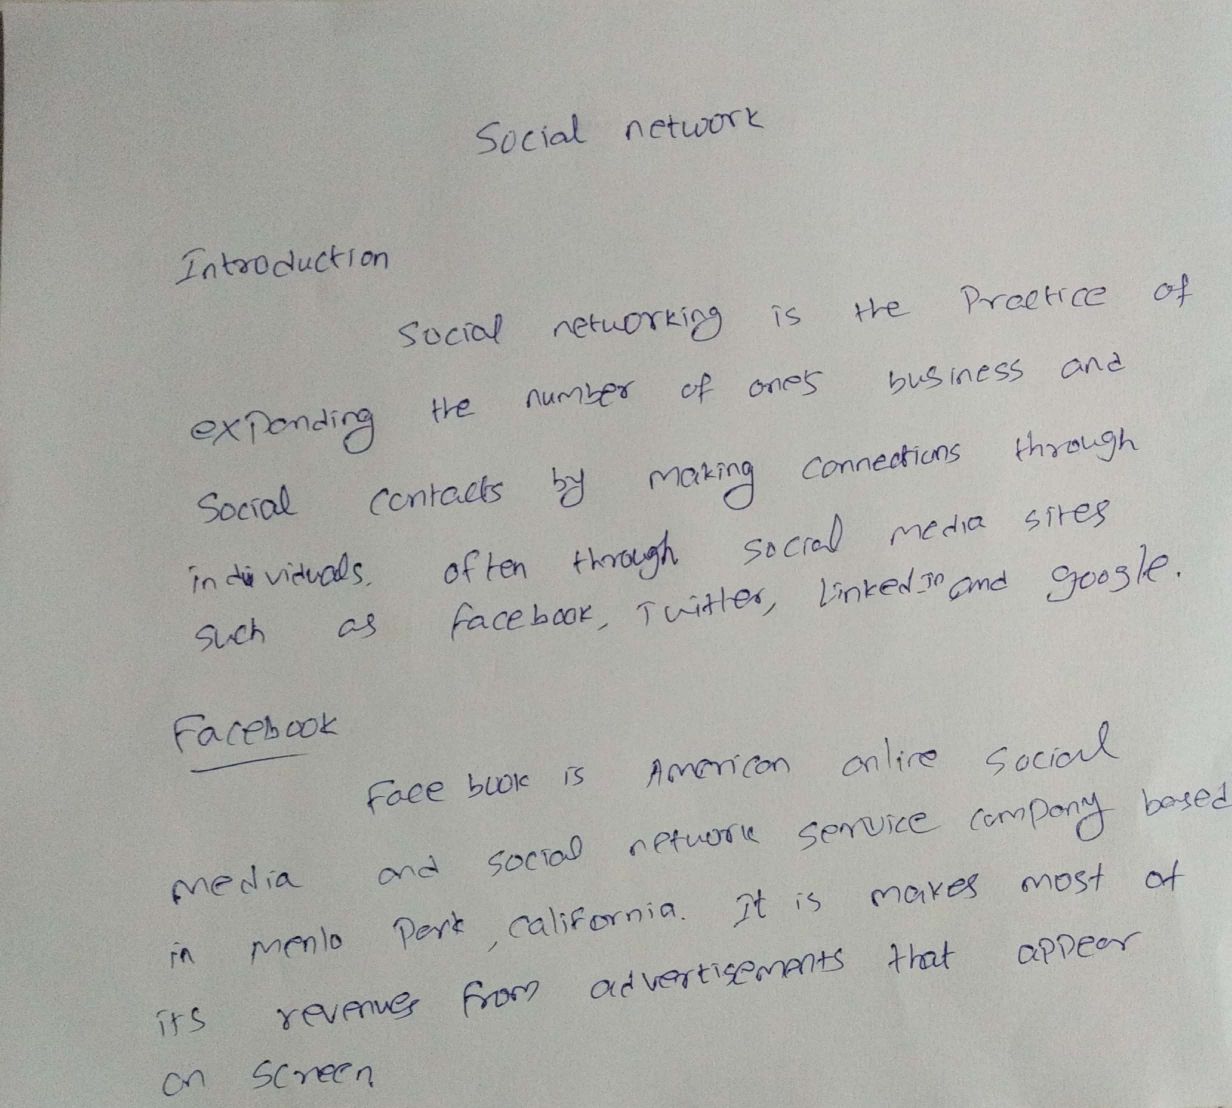 Social network
Introduction
Social networking is the Practice of
expanding the number of one's business and
Social contacts by making connections through
individuals. often through social media sites
such as facebook, Twitter, Linked In and google.
Facebook
Face book is American online social
media and social network service company based
in menlo Park, california. It is makes most of
its revenues from advertisements that appear
on screen